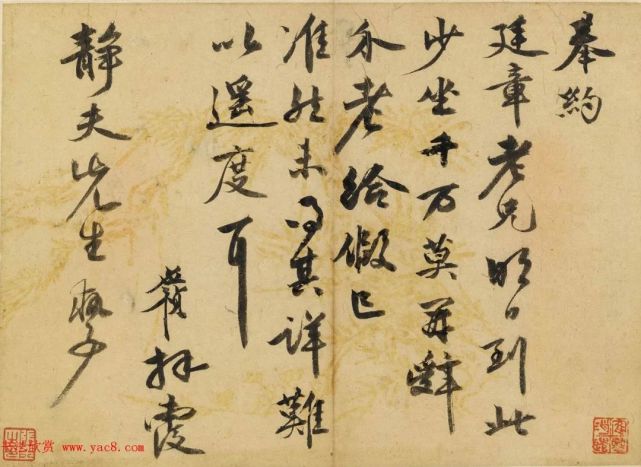 奉約
廷章老兄明日到此
少坐千万莫再辭
介老給假已
准然未得其詳難
以遥度耳
拜覆
静夫先生執事
欣赏 www.yac8.com